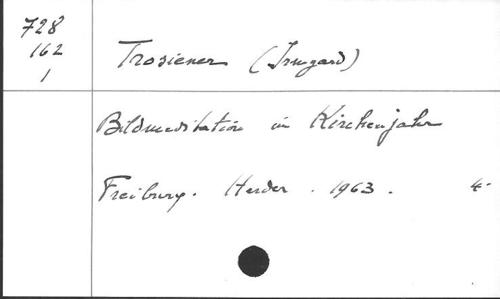 728
162
1
Trosiener (Irmgard)
Bildmeditation im Kirchenjahr
Freiburg. Herder. 1963. 4°